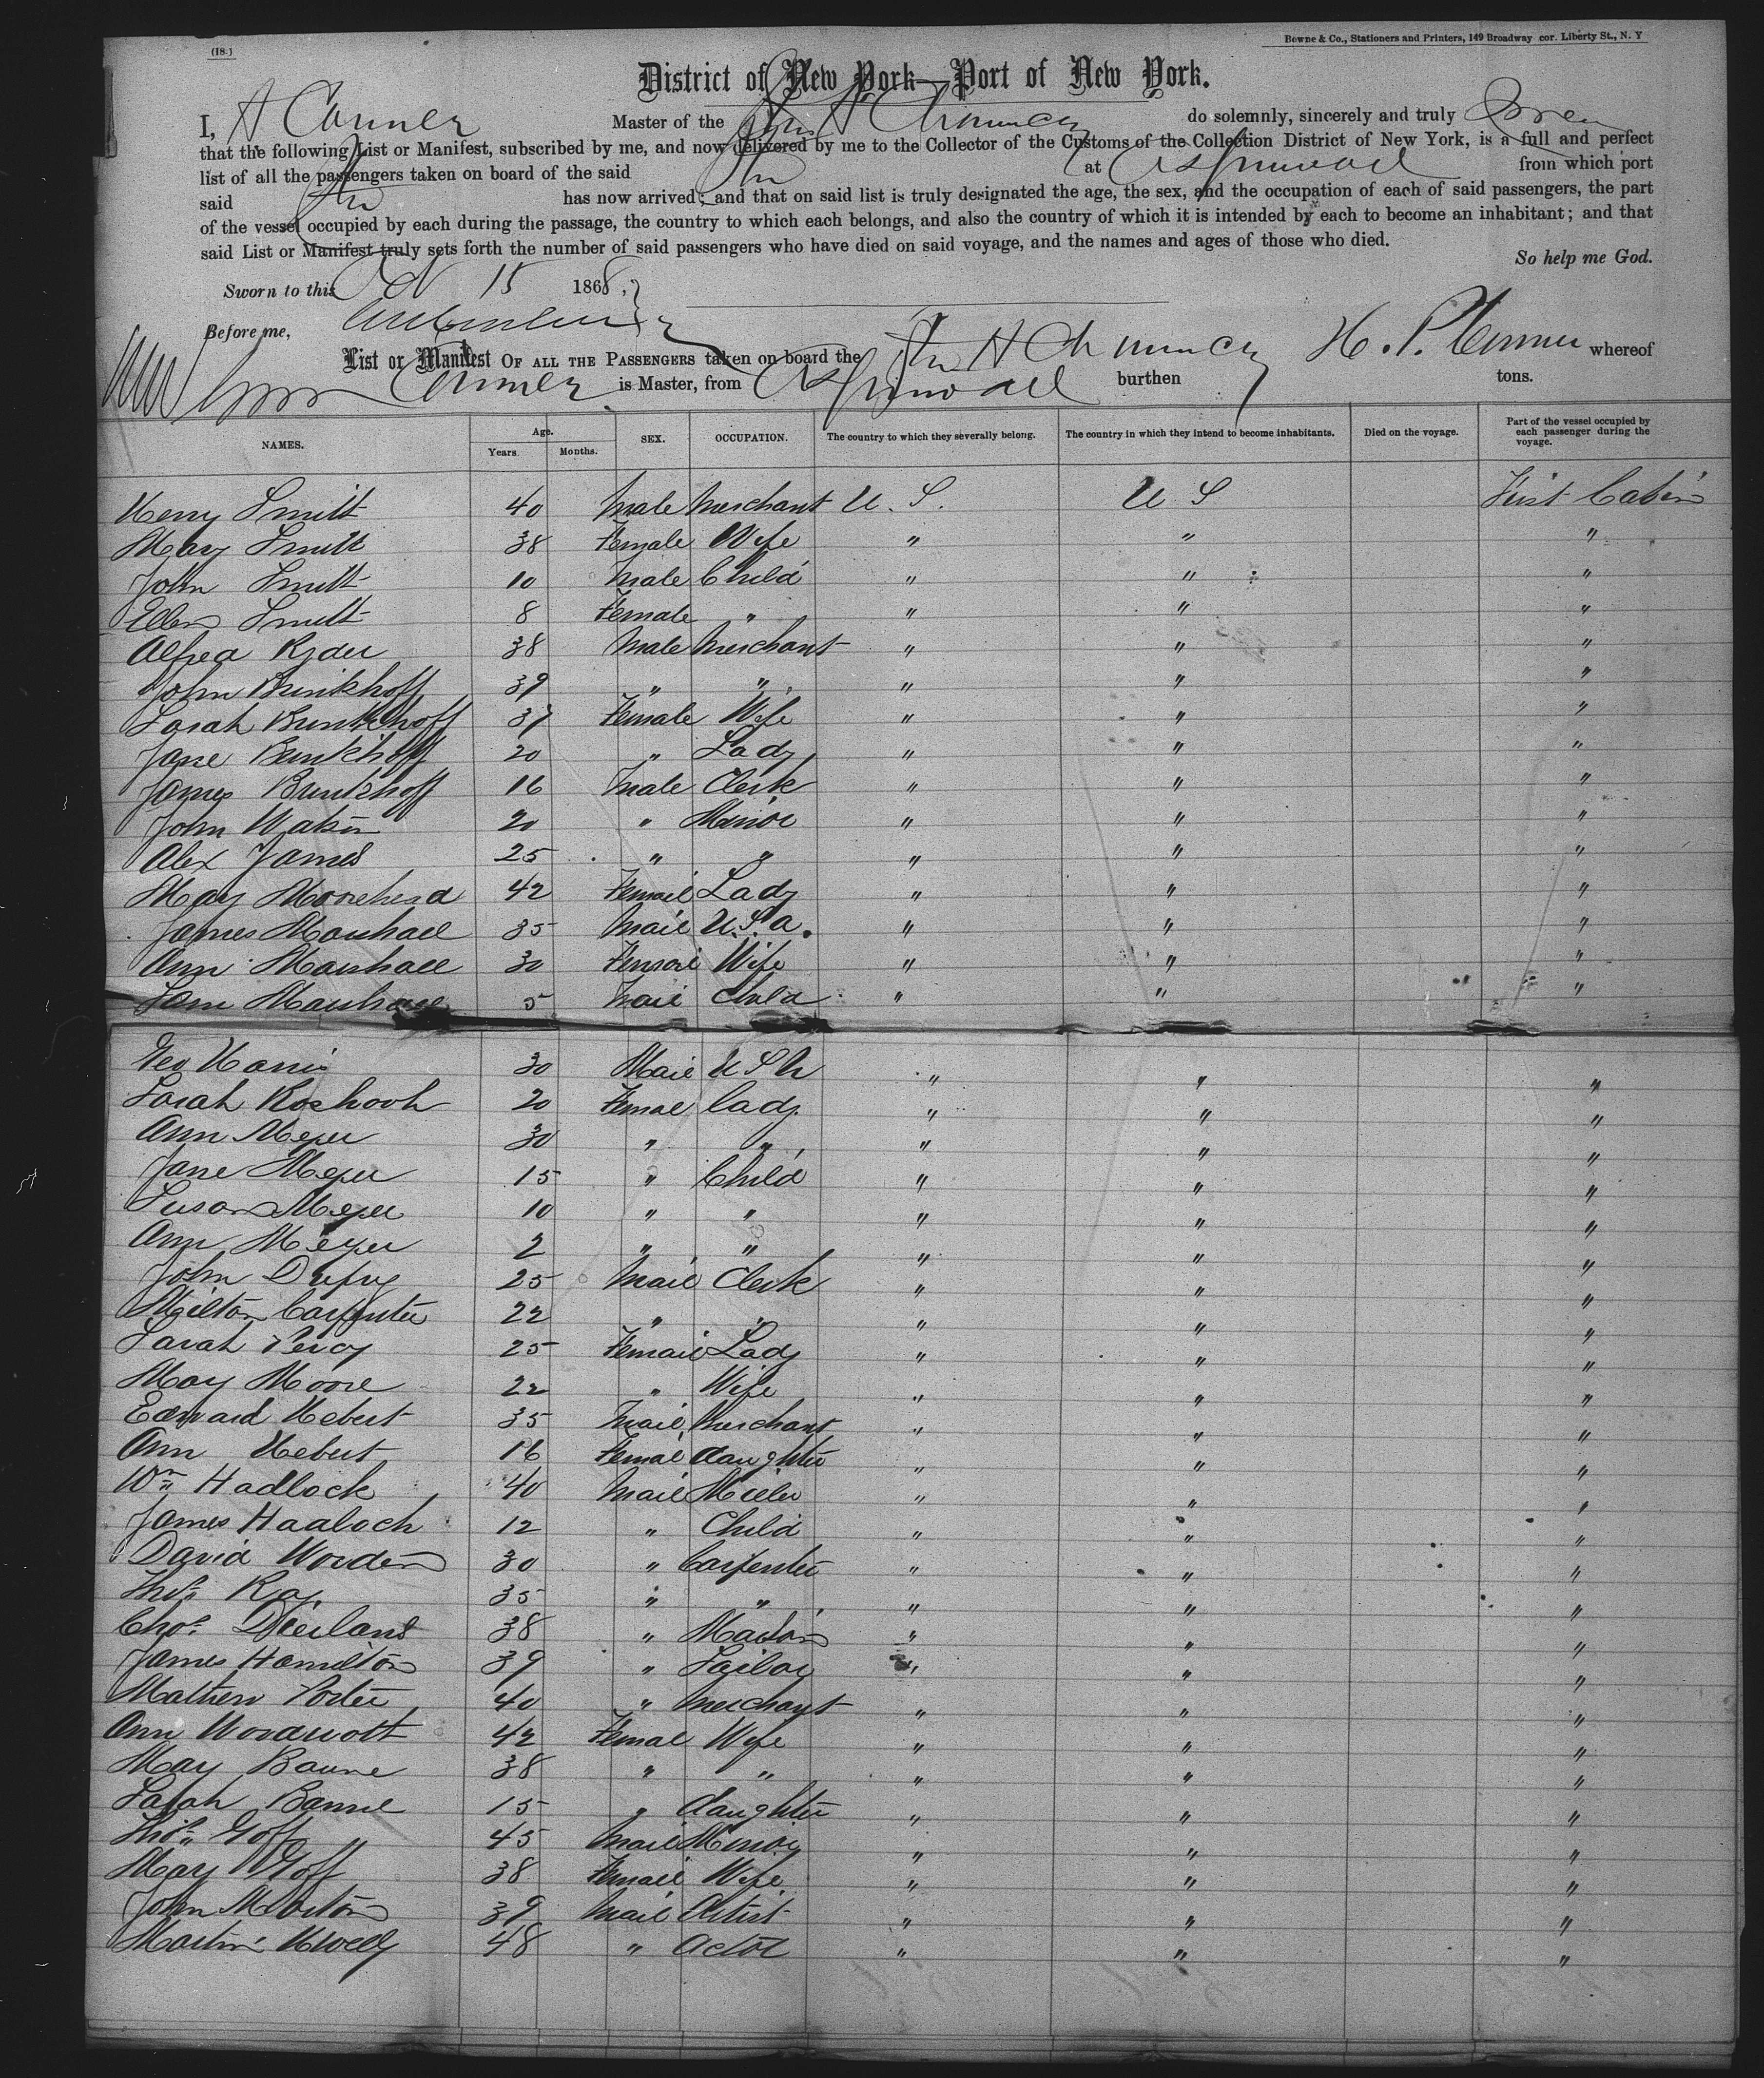 (18.)
Bowne & Co., Stationers and Printers, 149 Broadway cor. Liberty St., N. Y
District of New York—Port of New York.
I, A Conner Master of the Str H Chauncey do solemnly, sincerely and truly Swear
that the following List or Manifest, subscribed by me, and now delivered by me to the Collector of the Customs of the Collection District of New York, is a full and perfect
list of all the passengers taken on board of the said Str at Aspinwall from which port
said Str has now arrived; and that on said list is truly designated the age, the sex, and the occupation of each of said passengers, the part
of the vessel occupied by each during the passage, the country to which each belongs, and also the country of which it is intended by each to become an inhabitant; and that
said List or Manifest truly sets forth the number of said passengers who have died on said voyage, and the names and ages of those who died.
So help me God.
Sworn to this Oct 15 1868,
Before me,
List or Manifest OF ALL THE PASSENGERS taken on board the Str H Chauncey H. P. Conner whereof
Conner is Master, from Aspinwall burthen tons.
NAMES. Age. Years. Months. SEX. OCCUPATION. The country to which they severally belong. The country in which they intend to become inhabitants. Died on the voyage. Part of the vessel occupied by each passenger during the voyage.
Henry Smitt 40 Male Merchant U. S. U S First Cabin
Mary Smitt 38 Female Wife " " "
John Smitt 10 Male Child " " "
Ellen Smitt 8 Female " " " "
Alfred Ryder 38 Male Merchant " " "
John Brinkhoff 39 " " " " "
Sarah Brinkhoff 37 Female Wife " " "
Jane Brinkhoff 20 " Lady " " "
James Brinkhoff 16 Male Clerk " " "
John Watson 20 " Minor " " "
Alex James 25 " " " " "
Mary Moorehead 42 Femail Lady " " "
James Marshall 35 Mail U.S.A. " " "
Ann Marshall 30 Femail Wife " " "
Sam Marshall 5 Mail Child " " "
Geo Harris 30 Mail U S N " " "
Sarah 20 Femal Lady " " "
Ann Meyer 30 " " " " "
Jane Meyer 15 " Child " " "
Susan Meyer 10 " " " " "
Ann Meyer 2 " " " " "
John Dufuy 25 Mail Clerk " " "
Milton Carpenter 22 " " " " "
Sarah Percy 25 Femail Lady " " "
Mary Moore 22 " Wife " " "
Edward Hebert 35 Mail Merchant " " "
Ann Hebert 16 Femal daughter " " "
Wm Hadlock 40 Mail Miller " " "
James Hadloch 12 " Child " " "
David Worden 30 " Carpenter " " "
Thos Ray 35 " " " " "
Chas 38 " Mason " " "
James Hamilton 39 " Sailor " " "
Mathew Porter 40 " Merchant " " "
Ann Woodwoth 42 Femal Wife " " "
Mary Baune 38 " " " " "
Sarah Baune 15 " daughter " " "
Thos Goff 45 Mail Minor " " "
Mary Goff 38 Femail Wife " " "
John Morton 39 Mail Artist " " "
Martin 48 " Actor " " "